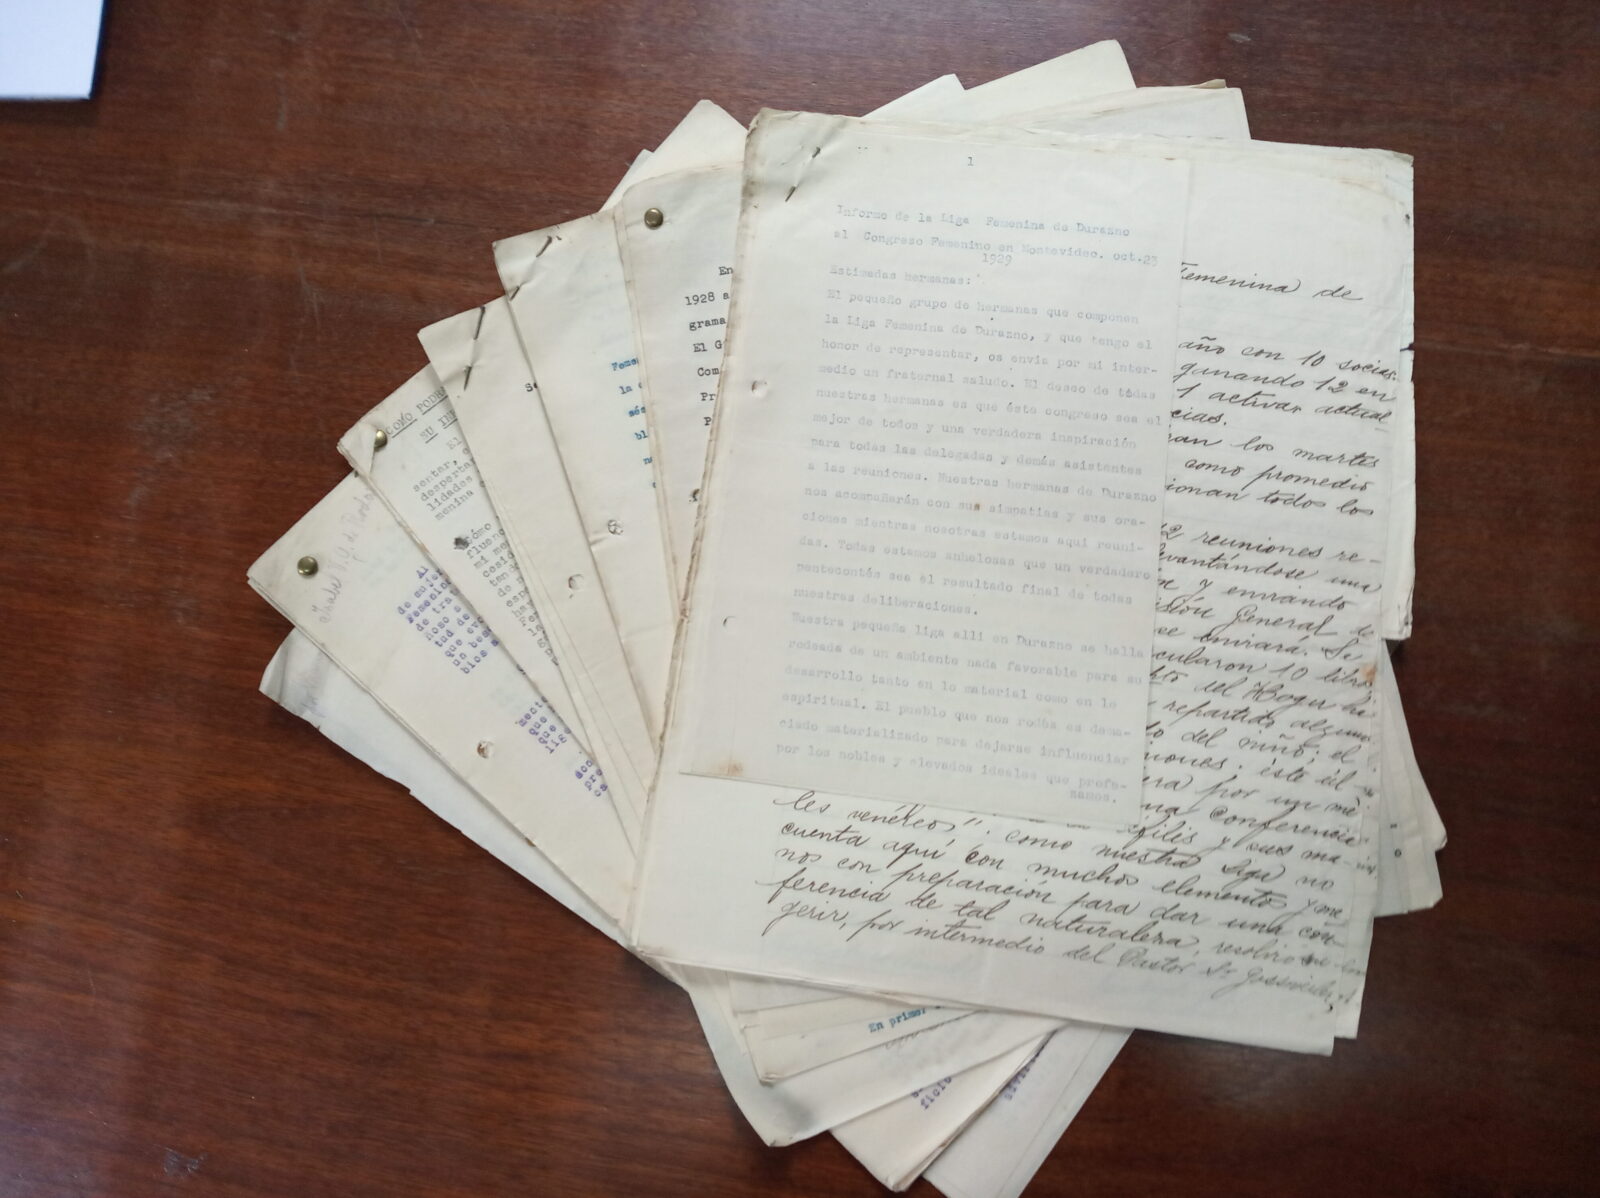 1
Informe de la Liga Femenina de Durazno
al Congreso Femenino en Montevideo. oct.23
1929
Estimadas hermanas:
El pequeño grupo de hermanas que componen
la Liga Femenina de Durazno, y que tengo el
honor de representar, os envia por mi inter-
medio un fraternal saludo. El deseo de todas
nuestras hermanas es que ésto congreso sea el
mejor de todos y una verdadera inspiración
para todas las delegadas y demás asistentes
a las reuniones. Nuestras hermanas de Durazno
nos acompañarán con sus simpatias y sus ora-
ciones mientras nosotras estamos aqui reuni-
das. Todas estamos anhelosas que un verdadero
pentecostés sea el resultado final de todas
nuestras deliberaciones.
Nuestra pequeña liga alli en Durazno se halla
rodeada de un ambiente nada favorable para su
desarrollo tanto en lo material como en lo
espiritual. El pueblo que nos rodea es dema-
ciado materializado para dejarse influenciar
por los nobles y elevados ideales que profe-
samos.
Femenina de
año con 10 socias.
ganando 12 en
1 activas actual
cias.
los martes
como promedio
ionan todos los
12 reuniones re-
levantándose una
y enviando
General de
se enviará. Se
cularon 10 libros
del Hogar
repartido algunos
del niño; el
iones. éste úl-
por un mé-
una conferencia
sífilis y sus ma-
les venéreos". como nuestra Liga no
cuenta aquí con muchos elementos y me-
nos con preparación para dar una con-
ferencia de tal naturaleza, resolvió
gerir, por intermedio del Pastor Sr
En
1928 a
grama
El G
Com
Pr
Feme
la
sés
bl
Se
COMO PODRE
SU IN
El
sentar,
desperta
lidades
menina
cómo
fluenc
mi me
cesid
tend
de
esp
hay
de Rodo
Al
de mujer
Femenina
de tra
noso
tud de
que evo
un hes
bles
ment
que
que
lig
En primer